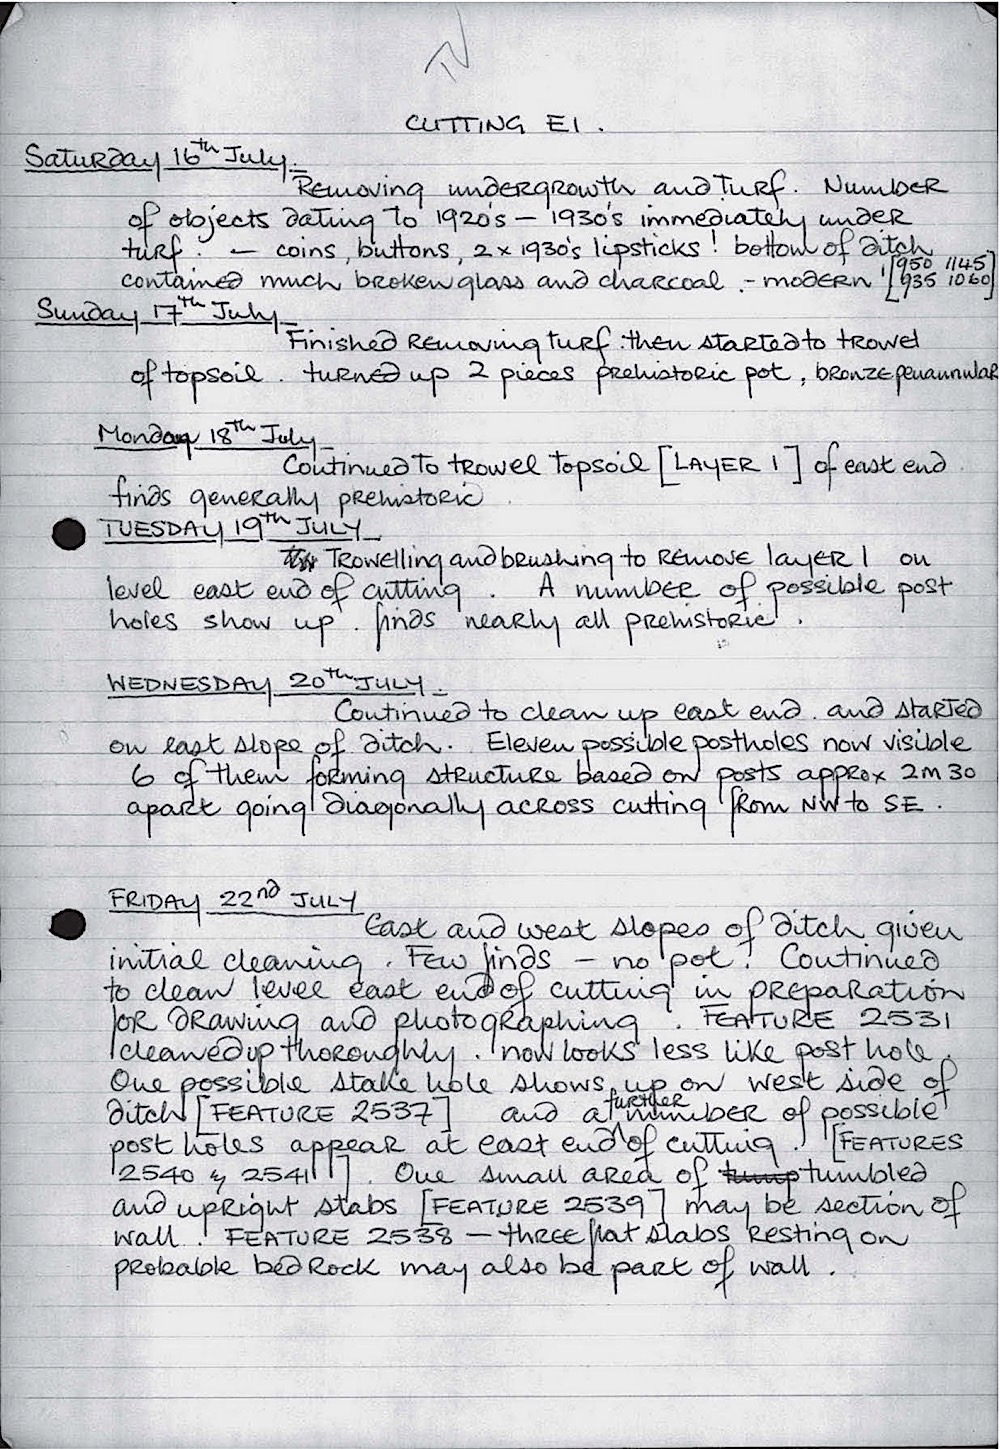 CUTTING E1.
Saturday 16th July.
Removing undergrowth and turf. Number
of objects dating to 1920's – 1930's immediately under
turf. – coins, buttons, 2 x 1930's lipsticks! bottom of ditch
contained much broken glass and charcoal. - modern [950 1145
935 1060]
Sunday 17th July
Finished removing turf. then started to trowel
of topsoil. turned up 2 pieces prehistoric pot, bronze penannular
Monday 18th July
Continued to trowel topsoil [LAYER 1] of east end
finds generally prehistoric.
TUESDAY 19th JULY
Trowelling and brushing to remove layer 1 on
level east end of cutting. A number of possible post
holes show up. finds nearly all prehistoric.
WEDNESDAY 20th JULY.
Continued to clean up east end. and started
on east slope of ditch. Eleven possible postholes now visible
6 of them forming structure based on posts approx 2m30
apart going diagonally across cutting from NW to SE.
FRIDAY 22nd JULY
East and west slopes of ditch given
initial cleaning. Few finds – no pot! Continued
to clean level east end of cutting in preparation
for drawing and photographing. FEATURE 2531
cleaned up thoroughly. now looks less like post hole.
One possible stake hole shows up on west side of
ditch [FEATURE 2537] and a further number of possible
post holes appear at east end of cutting. [FEATURES
2540 & 2541]. One small area of tump tumbled
and upright slabs [FEATURE 2539] may be section of
wall. FEATURE 2538 – three flat slabs resting on
probable bedrock may also be part of wall.